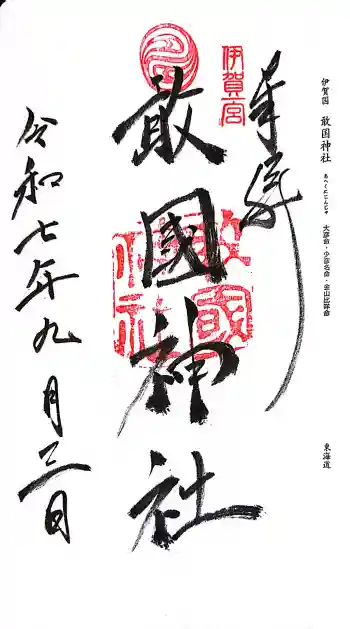 伊賀国 敢国神社 あへくにじんじゃ 大彦命・少彦名命・金山比咩命
東海道
奉拝
伊賀一宮
敢國神社
敢國神社
令和七年九月三日